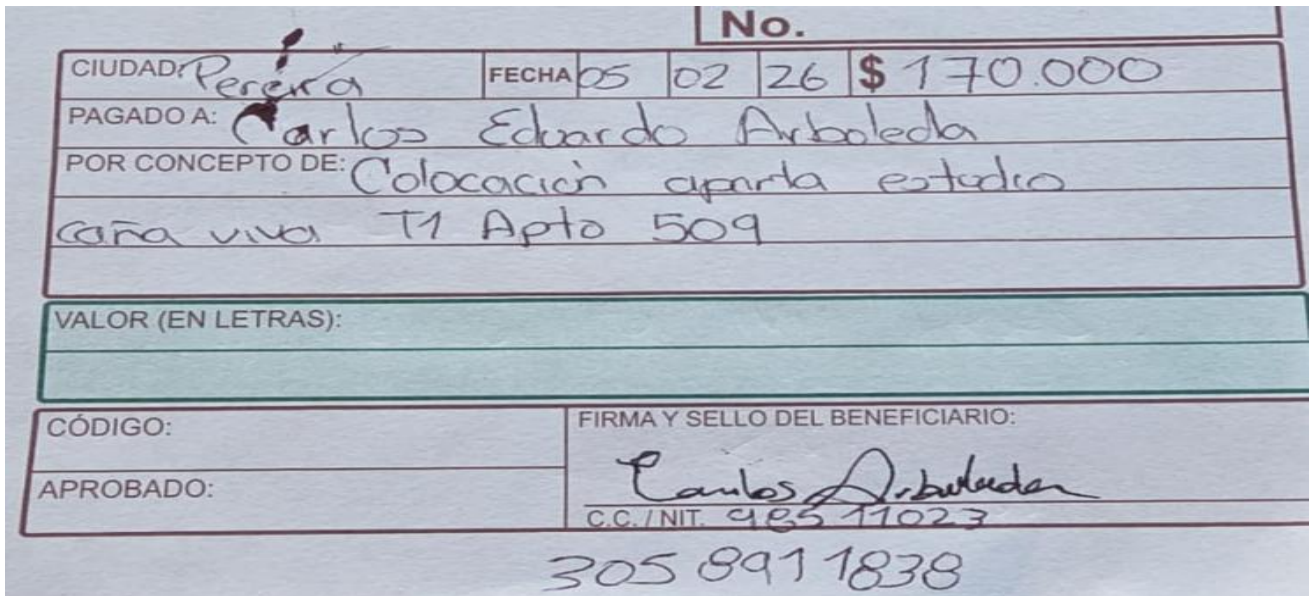 No.
CIUDAD: Pereira FECHA 05 02 26 $ 170.000
PAGADO A: Carlos Eduardo Arboleda
POR CONCEPTO DE: Colocación aparta estudio
caña viva T1 Apto 509
VALOR (EN LETRAS):
CÓDIGO: FIRMA Y SELLO DEL BENEFICIARIO:
Carlos Arboleda
APROBADO:
C.C. / NIT. 98511023
305 8911838